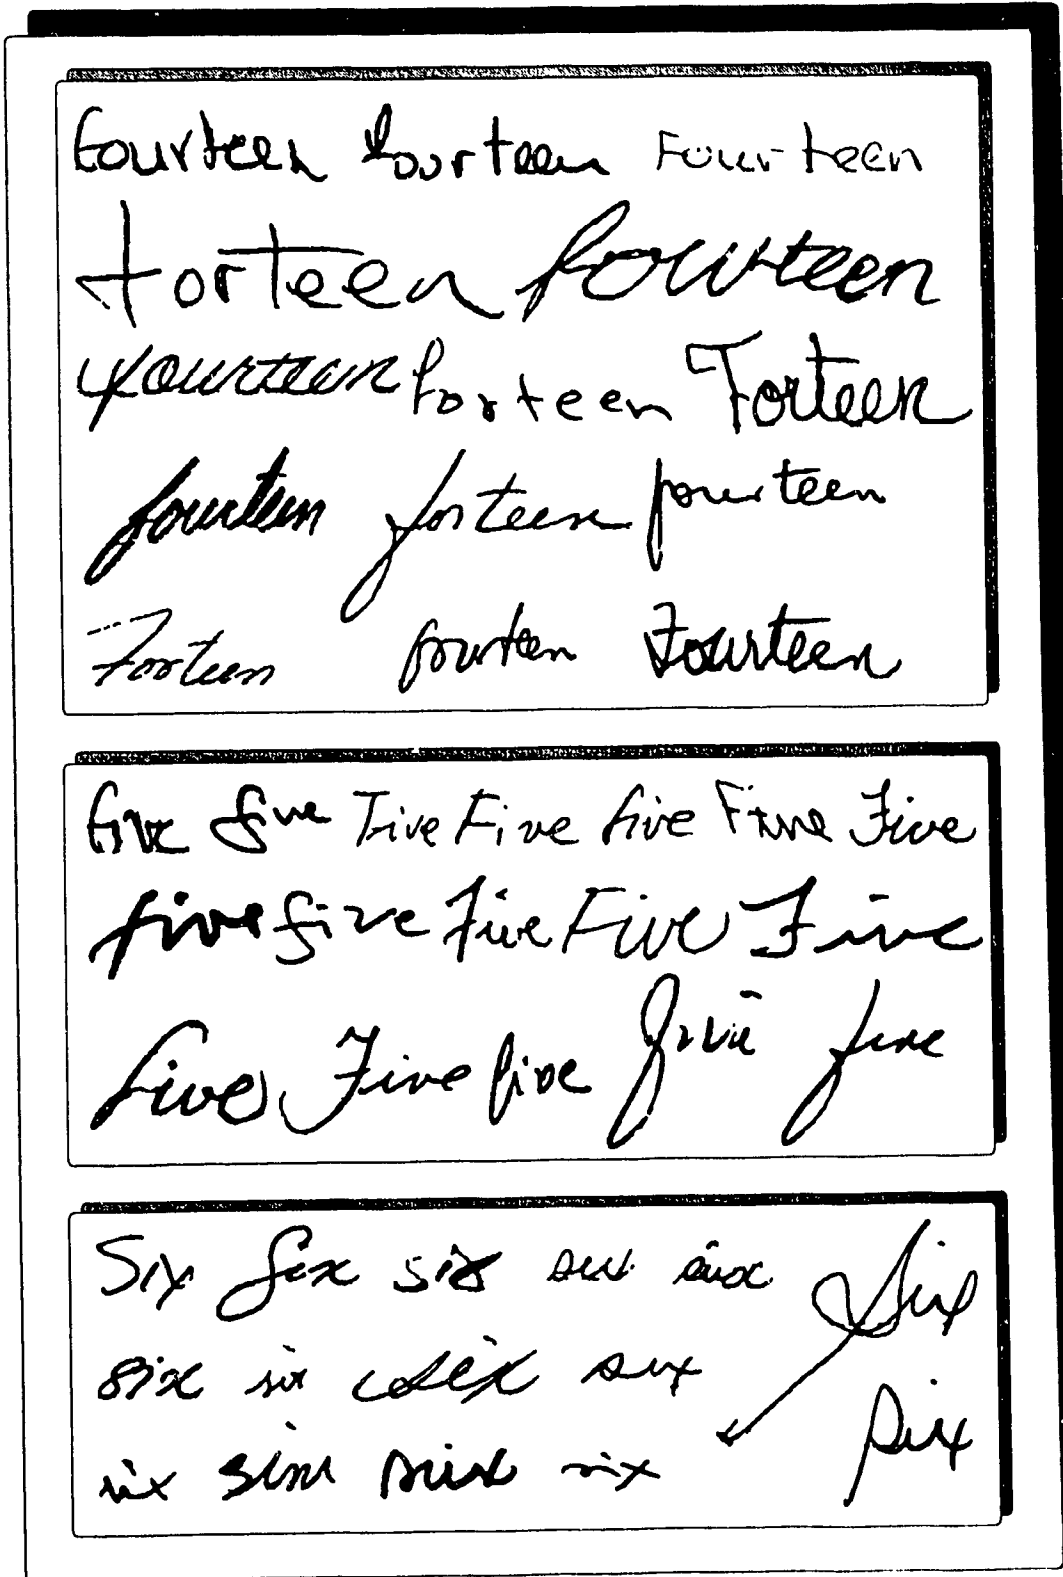 fourteen fourteen Fourteen
forteen fourteen
fourteen forteen Forteen
fourteen forteen fourteen
Forteen fourteen Fourteen
five five Five Five five Five Five
five five Five Five Five
five Five five five five
Six six six six six Six
six six six six
six six six six Six